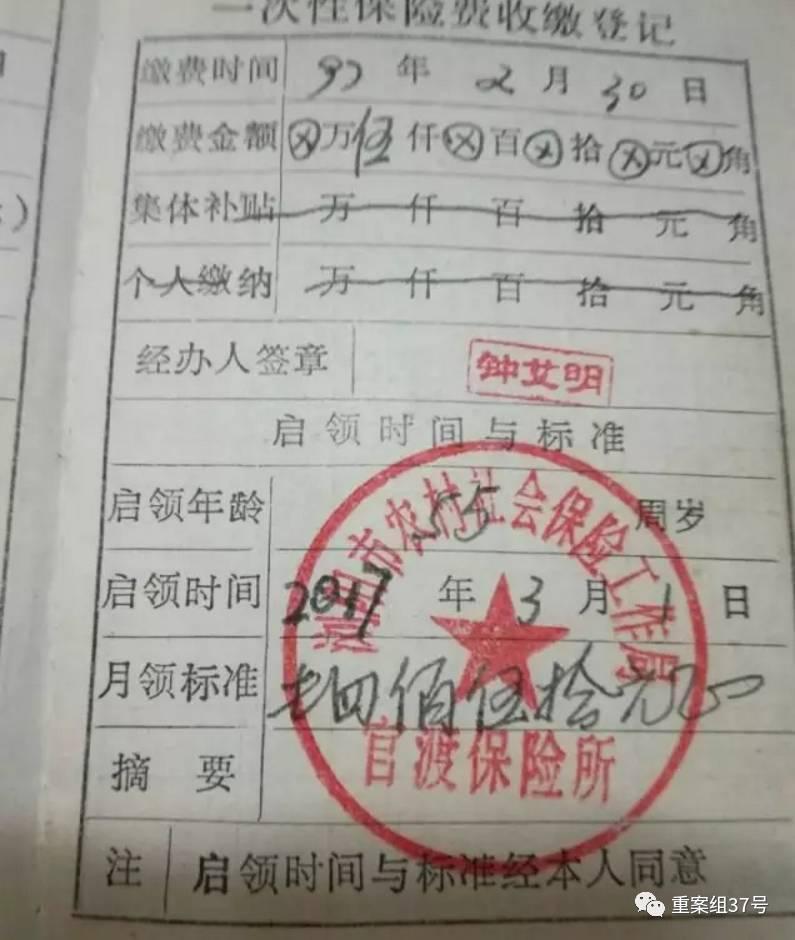 一次性保险费收缴登记
缴费时间 97 年 2 月 30 日
缴费金额 ⊗万伍仟⊗百⊗拾⊗元⊗角
集体补贴 万 仟 百 拾 元 角
个人缴纳 万 仟 百 拾 元 角
经办人签章 钟艾明
启领时间与标准
启领年龄 55 周岁
启领时间 2017 年 3 月 1 日
月领标准 四佰伍拾元正
摘 要
浏阳市农村社会保险工作局
官渡保险所
注 启领时间与标准经本人同意
重案组37号